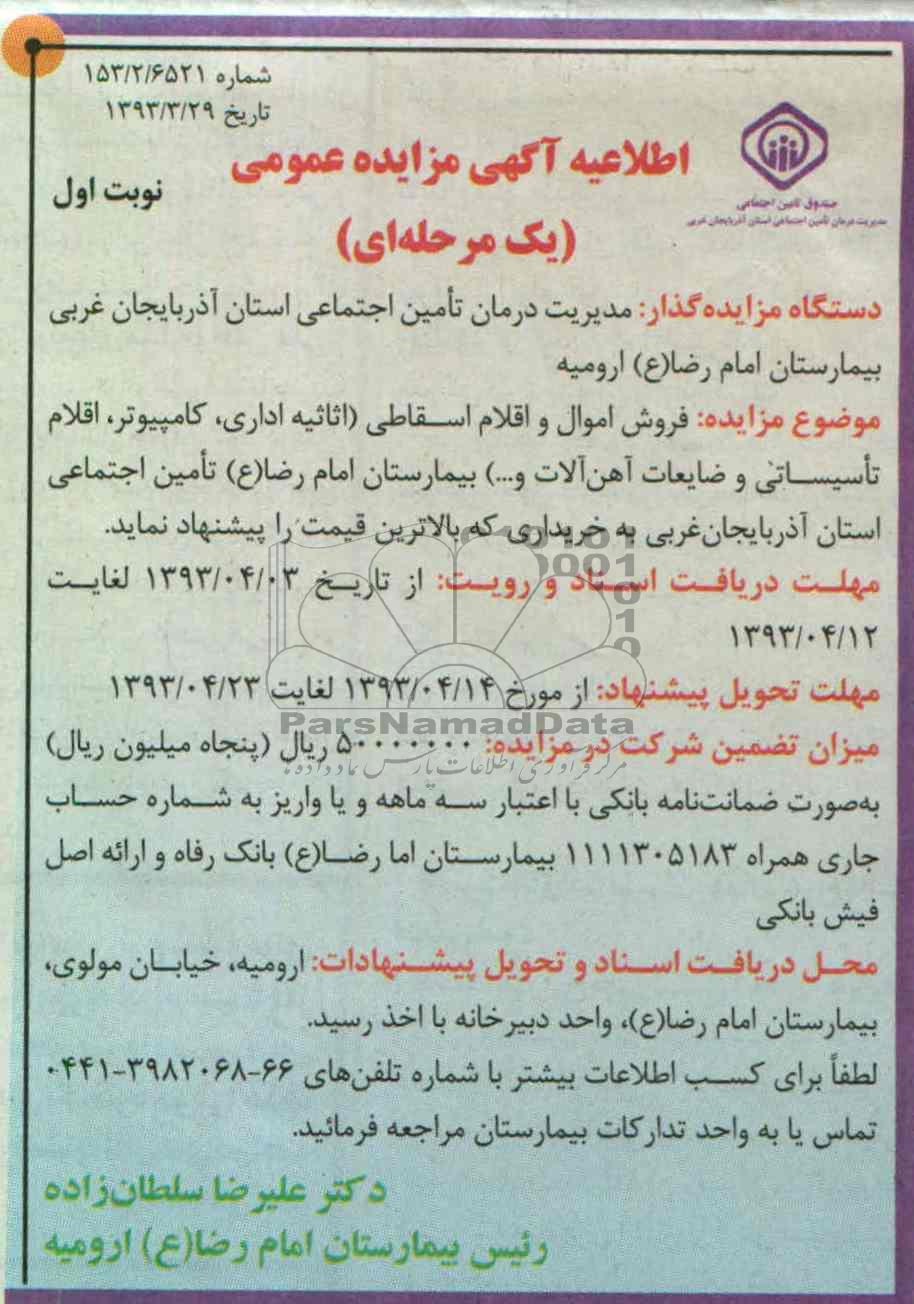 شماره ۱۵۳/۲/۶۵۲۱
تاریخ ۱۳۹۳/۳/۲۹
صندوق تامین اجتماعی
مدیریت درمان تأمین اجتماعی استان آذربایجان غربی
اطلاعیه آگهی مزایده عمومی
نوبت اول
(یک مرحله‌ای)
دستگاه مزایده‌گذار: مدیریت درمان تأمین اجتماعی استان آذربایجان غربی
بیمارستان امام رضا(ع) ارومیه
موضوع مزایده: فروش اموال و اقلام اسقاطی (اثاثیه اداری، کامپیوتر، اقلام
تأسیساتی و ضایعات آهن‌آلات و...) بیمارستان امام رضا(ع) تأمین اجتماعی
استان آذربایجان‌غربی به خریداری که بالاترین قیمت را پیشنهاد نماید.
مهلت دریافت اسناد و رویت: از تاریخ ۱۳۹۳/۰۴/۰۳ لغایت
۱۳۹۳/۰۴/۱۲
مهلت تحویل پیشنهاد: از مورخ ۱۳۹۳/۰۴/۱۴ لغایت ۱۳۹۳/۰۴/۲۳
ParsNamadData
میزان تضمین شرکت در مزایده: ۵۰۰۰۰۰۰۰ ریال (پنجاه میلیون ریال)
مرکز فرآوری اطلاعات پارس نماد داده ها
به‌صورت ضمانت‌نامه بانکی با اعتبار سه ماهه و یا واریز به شماره حساب
جاری همراه ۱۱۱۱۳۰۵۱۸۳ بیمارستان اما رضا(ع) بانک رفاه و ارائه اصل
فیش بانکی
محل دریافت اسناد و تحویل پیشنهادات: ارومیه، خیابان مولوی،
بیمارستان امام رضا(ع)، واحد دبیرخانه با اخذ رسید.
لطفاً برای کسب اطلاعات بیشتر با شماره تلفن‌های ۶۶-۳۹۸۲۰۶۸-۰۴۴۱
تماس یا به واحد تدارکات بیمارستان مراجعه فرمائید.
دکتر علیرضا سلطان‌زاده
رئیس بیمارستان امام رضا(ع) ارومیه